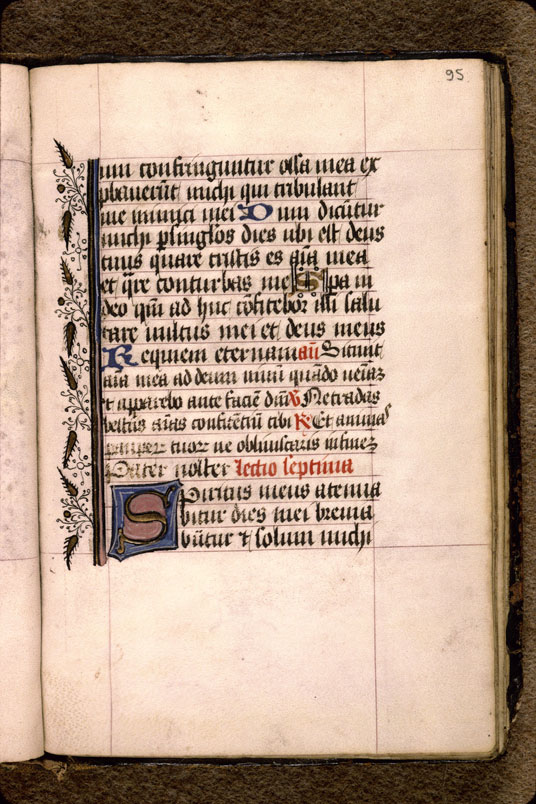 95
um confringuntur ossa mea ex
pbauerūt michi qui tribulant
me inimici mei Dum dicūtur
michi p singlos dies ubi est deus
tuus quare tristis es aīa mea
et qre conturbas me Spa in
deo qm̄ ad huc cōfitebor illi salu
tare uultus mei et deus meus
Requiem eternam añ Sitiuit
aīa mea ad deum uiuū quādo ueniā
et apparebo ante faciē dn̄i ℣ Ne tradas
bestiis aīas confitētiū tibi ℟ Et animas
pauper tuor ne obliuiscaris in finē
Pater noster lectio septima
Spiritus meus atenua
bitur dies mei breuia
būtur et solum michi